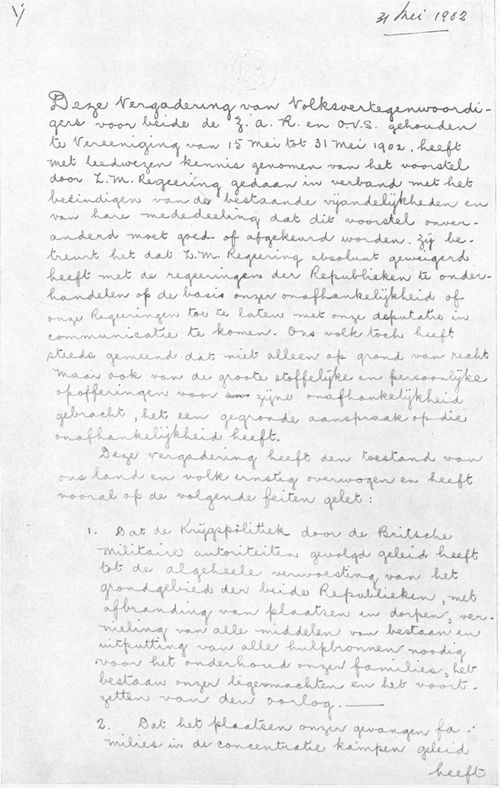 31 Mei 1902
Deze Vergadering van Volksvertegenwoordi-
gers voor beide de Z. A. R. en O.V.S. gehouden
te Vereeniging van 15 Mei tot 31 Mei 1902, heeft
met leedwezen kennis genomen van het voorstel
door Z. M. Regeering gedaan in verband met het
beëindigen van de bestaande vijandelijkheden en
van hare mededeeling dat dit voorstel onver-
anderd moet goed- of afgekeurd worden. Zij be-
treurt het dat Z. M. Regeering absoluut geweigerd
heeft met de regeeringen der Republieken te onder-
handelen op de basis onzer onafhankelijkheid of
onze Regeeringen toe te laten met onze deputatie in
communicatie te komen. Ons volk toch heeft
steeds gemeend dat niet alleen op grond van recht
maar ook van de groote stoffelijke en persoonlijke
opofferingen voor zijne onafhankelijkheid
gebracht, het een gegronde aanspraak op die
onafhankelijkheid heeft.
Deze vergadering heeft den toestand van
ons land en volk ernstig overwogen en heeft
vooral op de volgende feiten gelet:
1. Dat de Krijgspolitiek door de Britsche
militaire autoriteiten gevolgd geleid heeft
tot de algeheele verwoesting van het
grondgebied der beide Republieken, met
afbranding van plaatsen en dorpen, ver-
nieling van alle middelen van bestaan en
uitputting van alle hulpbronnen noodig
voor het onderhoud onzer families, het
bestaan onzer legermachten en het voort-
zetten van den oorlog.
2. Dat het plaatsen onzer gevangen fa-
milies in de concentratie kampen geleid
heeft